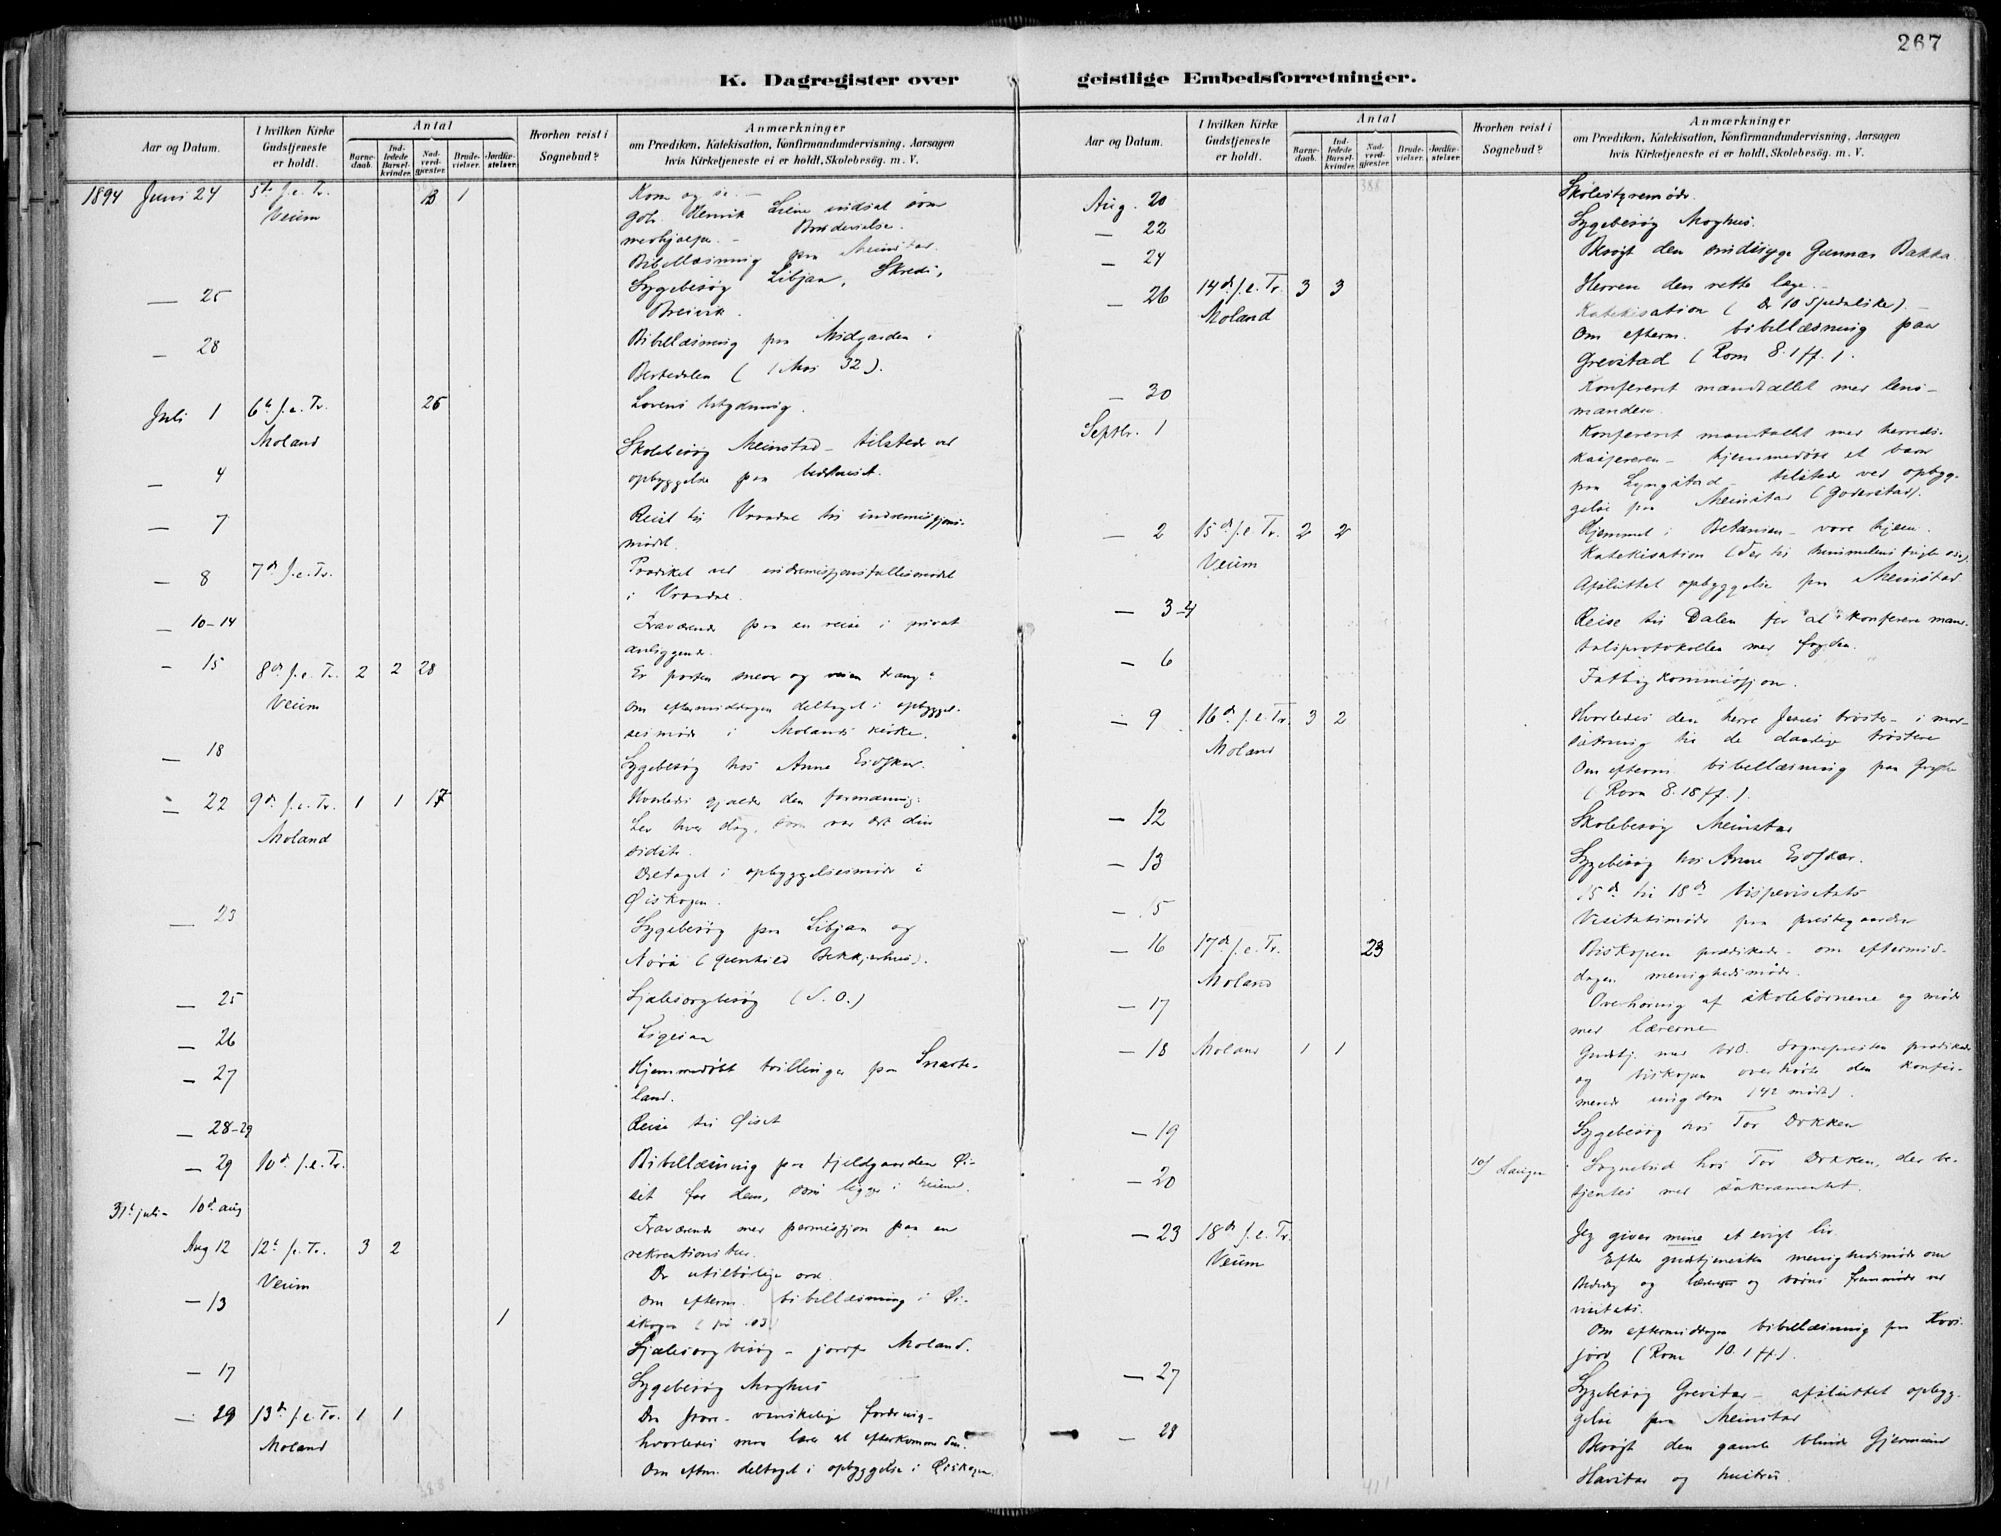 267
K. Dagregister over geistlige Embedsforretninger.
Aar og Datum.
I hvilken Kirke Gudstjeneste er holdt.
Antal
Barnedaab.
Indledede Barselkvinder.
Nadverdgjæster.
Brudevielser.
Jordfæstelser.
Hvorhen reist i Sognebud?
Anmærkninger
om Prædiken, Katekisation, Konfirmandundervisning, Aarsagen
hvis Kirketjeneste ei er holdt, Skolebesøg. m. V.
1894 Juni 24 5te f. e. Tr. 13 1 Kom og se. –
Veum
medhjælper. – Brudevielse.
Bibellæsning paa Meinstad.
— 25 Sygebesøg Libjan, Skredi,
Breivik.
— 28 Bibellæsning paa Midgarden i
Berbedalen (1 Mos 32).
Juli 1 6te f. e. Tr. 26 Lovens betydning.
Moland
Skolebesøg Meinstad – tilstede ved
— 4 opbyggelse paa bedehuset.
— 7 Reist til Vraadal til indremissjons-
mødet.
— 8 7de f. e. Tr. Prædiket ved indremissjonsfællesmødet
i Vraadal.
— 10–14 Fraværende paa en reise i privat
anliggende.
— 15 8de f. e. Tr. 2 2 28 Er porten snever og veien trang?
Veum Om eftermiddagen deltaget i opbyggel-
sesmøde i Molands kirke.
— 18 Sygebesøg hos Anne
— 22 9de f. e. Tr. 1 1 17 Hvorledes gjælder den formaning:
Moland Lev hver dag, som var det din
sidste.
Deltaget i opbyggelsesmøde i
Øiskogen.
— 23 Sygebesøg paa Libjan og
— 25 Sjælesorgbesøg (S. O.)
— 26 Ligesaa
— 27 Hjemmedøbt tvillinger paa Snarte-
land.
— 28–29 Reise til Øiset
— 29 10de f. e. Tr. Bibellæsning paa Fjeldgaarden Øi-
set for dem, som ligger i
31te juli – 10de aug Fraværende med permissjon paa en
rekreationstur.
Aug 12 12te f. e. Tr. 3 2
Veum De utilbørlige ord.
— 13 1 Om efterm. bibellæsning i Øi-
skogen
Sjælesorgbesøg – jordf. Moland.
— 17 Sygebesøg Moghus
— 19 13de f. e. Tr. 1 1 Den svære – vanskelige fordring –
Moland hvorledes man lærer at efterkomme den.
Om eftm. deltaget i opbyggelse i Øiskogen.
388
Aar og Datum.
I hvilken Kirke Gudstjeneste er holdt.
Antal
Barnedaab.
Indledede Barselkvinder.
Nadverdgjæster.
Brudevielser.
Jordfæstelser.
Hvorhen reist i Sognebud?
Anmærkninger
om Prædiken, Katekisation, Konfirmandundervisning, Aarsagen
hvis Kirketjeneste ei er holdt, Skolebesøg. m. V.
388
Aug. 20 Skolestyremøde.
— 22 Sygebesøg Moghus.
— 24 Besøgt den sindssyge Gunnar Bakka
— 26 14de f. e. Tr. 3 3 Herren den rette læge. –
Moland Katekisation (De 10 Spedalske) –
Om efterm. bibellæsning paa
Grevstad (Rom 8. 1 ff.).
— 30 Konfereret mandtallet med lens-
manden.
Septbr. 1 Konfereret mantallet med herreds-
kasjereren – hjemmedøbt et barn
paa Lyngstad – tilstede ved opbyg-
gelse paa Meinstad
— 2 15de f. e. Tr. 2 2 Hjemmet i Betanien – vore hjem.
Veum Katekisation
Afsluttet opbyggelse paa Meinstad
— 3–4 Reise til Dalen for at konferere man-
talsprotokollen med fogden.
— 6 Fattigkommissjon.
— 9 16de f. e. Tr. 3 2 Hvorledes den herre Jesus trøster – i mod-
Moland sætning til de daarlige trøstere
Om efterm. bibellæsning paa
(Rom 8. 18 ff.).
— 12 Skolebesøg Meinstad
— 13 Sygebesøg hos Anne
15de til 18de bispevisitats
— 15 Visitatsmøde paa prestegaarden
— 16 17de f. e. Tr. 23 Biskopen prædikede – om eftermid-
Moland dagen menighedsmøde.
— 17 Overhøring af skolebørnene og møde
med lærerne
— 18 Moland 1 1 Gudstj. med Sognepresten prædikede
og biskopen overhørte den konfir-
merede ungdom (42 mødt).
— 19 Sygebesøg hos Tor Dekken
— 20 Sognebud hos Tor Dekken, der be-
tjentes med sakramentet.
— 23 18de f. e. Tr. Jeg giver mine et evigt liv.
Veum Efter gudstjenesten menighedsmøde om
og lærernes og børns fremmøde ved
visitats.
Om eftermiddagen bibellæsning paa Kvis-
jord (Rom 10. 1 ff.).
— 27 Sygebesøg Grevstad – afsluttet opbyg-
gelse paa Meinstad
— 28 Besøgt den gamle blinde Gjermund
Havstad og hustru.
411